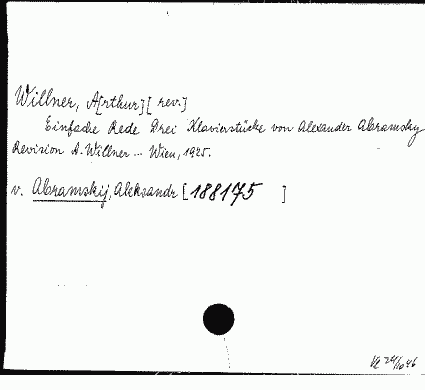 Willner, A[rthur] [rev.]
Einfache Rede Drei Klavierstücke von Alexander Abramsky
Revision A. Willner ... Wien, 1925.
v. Abramskij, Aleksandr [188175 ]
24/10 46